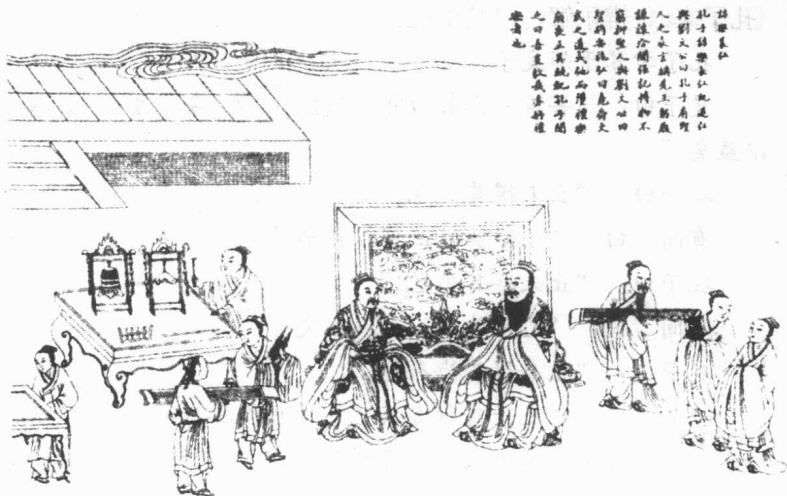 訪樂萇弘
孔子訪樂萇弘既退弘
與劉文公曰孔子有聖
人之表言稱先王躬履
謙讓洽聞強記博物不
窮抑聖人與劉文公曰
聖將安施弘曰堯舜文
武之道或弛而墜禮樂
崩喪正其統紀孔子聞
之曰吾豈敢哉亦好禮
樂者也